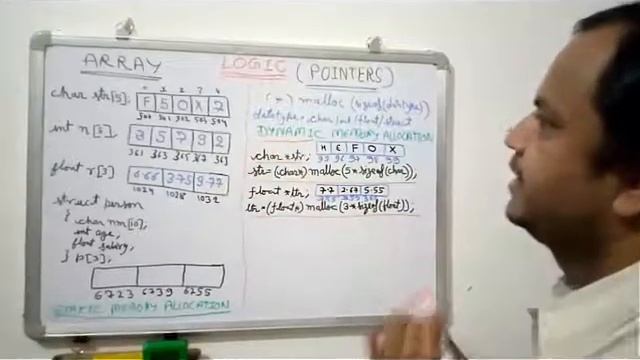 ARRAY
LOGIC (POINTERS)
0 1 2 3 4
char str[5]; F 5 0 X 2
500 501 502 503 504
int n[5]; 8 5 7 9 2
361 363 365 367 369
float r[3]; 6.66 3.75 9.77
1024 1028 1032
struct person
{ char nm[10];
int age;
float salary;
} p[3];
6723 6739 6755
STATIC MEMORY ALLOCATION
(*) malloc (sizeof(datatype))
datatype = char/int/float/struct
DYNAMIC MEMORY ALLOCATION
char *str; H E F O X
95 96 97 98 99
str = (char*) malloc (5 * sizeof(char));
float *ptr; 7.7 2.67 5.55
ptr = (float*) malloc (3 * sizeof(float));